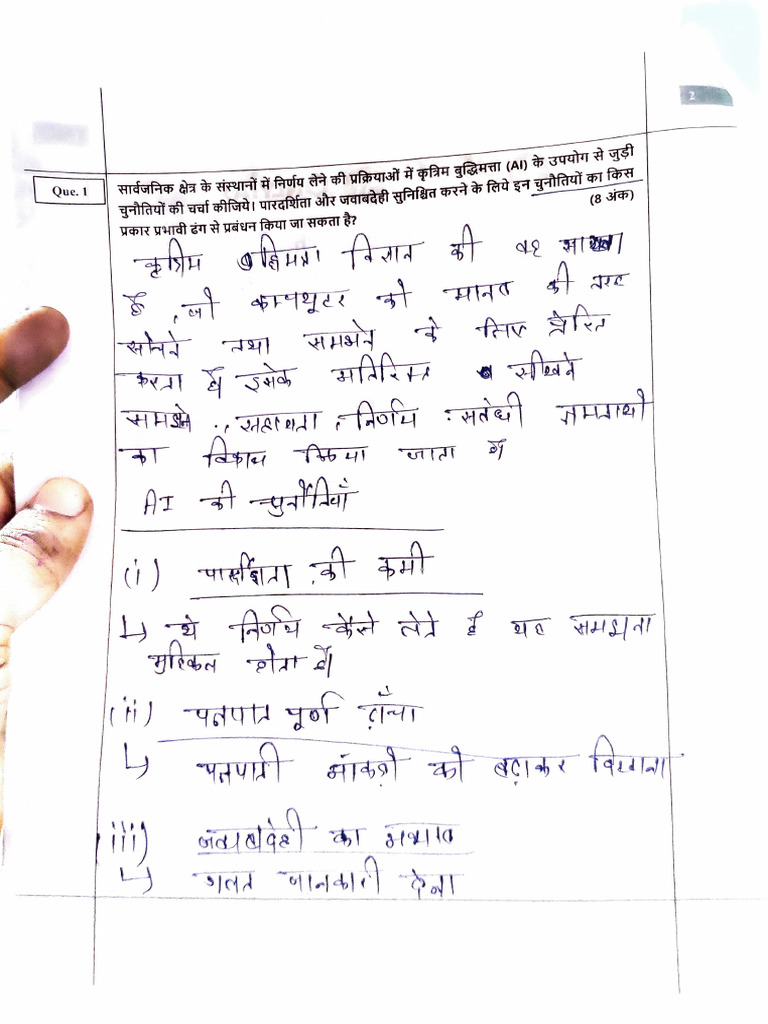 2
Que. 1
सार्वजनिक क्षेत्र के संस्थानों में निर्णय लेने की प्रक्रियाओं में कृत्रिम बुद्धिमत्ता (AI) के उपयोग से जुड़ी
चुनौतियों की चर्चा कीजिये। पारदर्शिता और जवाबदेही सुनिश्चित करने के लिये इन चुनौतियों का किस
प्रकार प्रभावी ढंग से प्रबंधन किया जा सकता है?
(8 अंक)
कृत्रिम बुद्धिमत्ता विज्ञान की वह शाखा
है, जो कम्प्यूटर को मानव की तरह
सोचने तथा समझने के लिए प्रेरित
करता है इसके अतिरिक्त सीखने
समझने, सहायता, निर्णय संबंधी क्षमताओं
का विकास किया जाता है
AI की चुनौतियाँ
(i) पारदर्शिता की कमी
↳ ये निर्णय कैसे लेते है यह समझना
मुश्किल होता है।
(ii) पक्षपात पूर्ण ढाँचा
↳ पक्षपाती आंकड़ो को बढ़ाकर दिखाना
(iii) जवाबदेही का अभाव
↳ गलत जानकारी देना